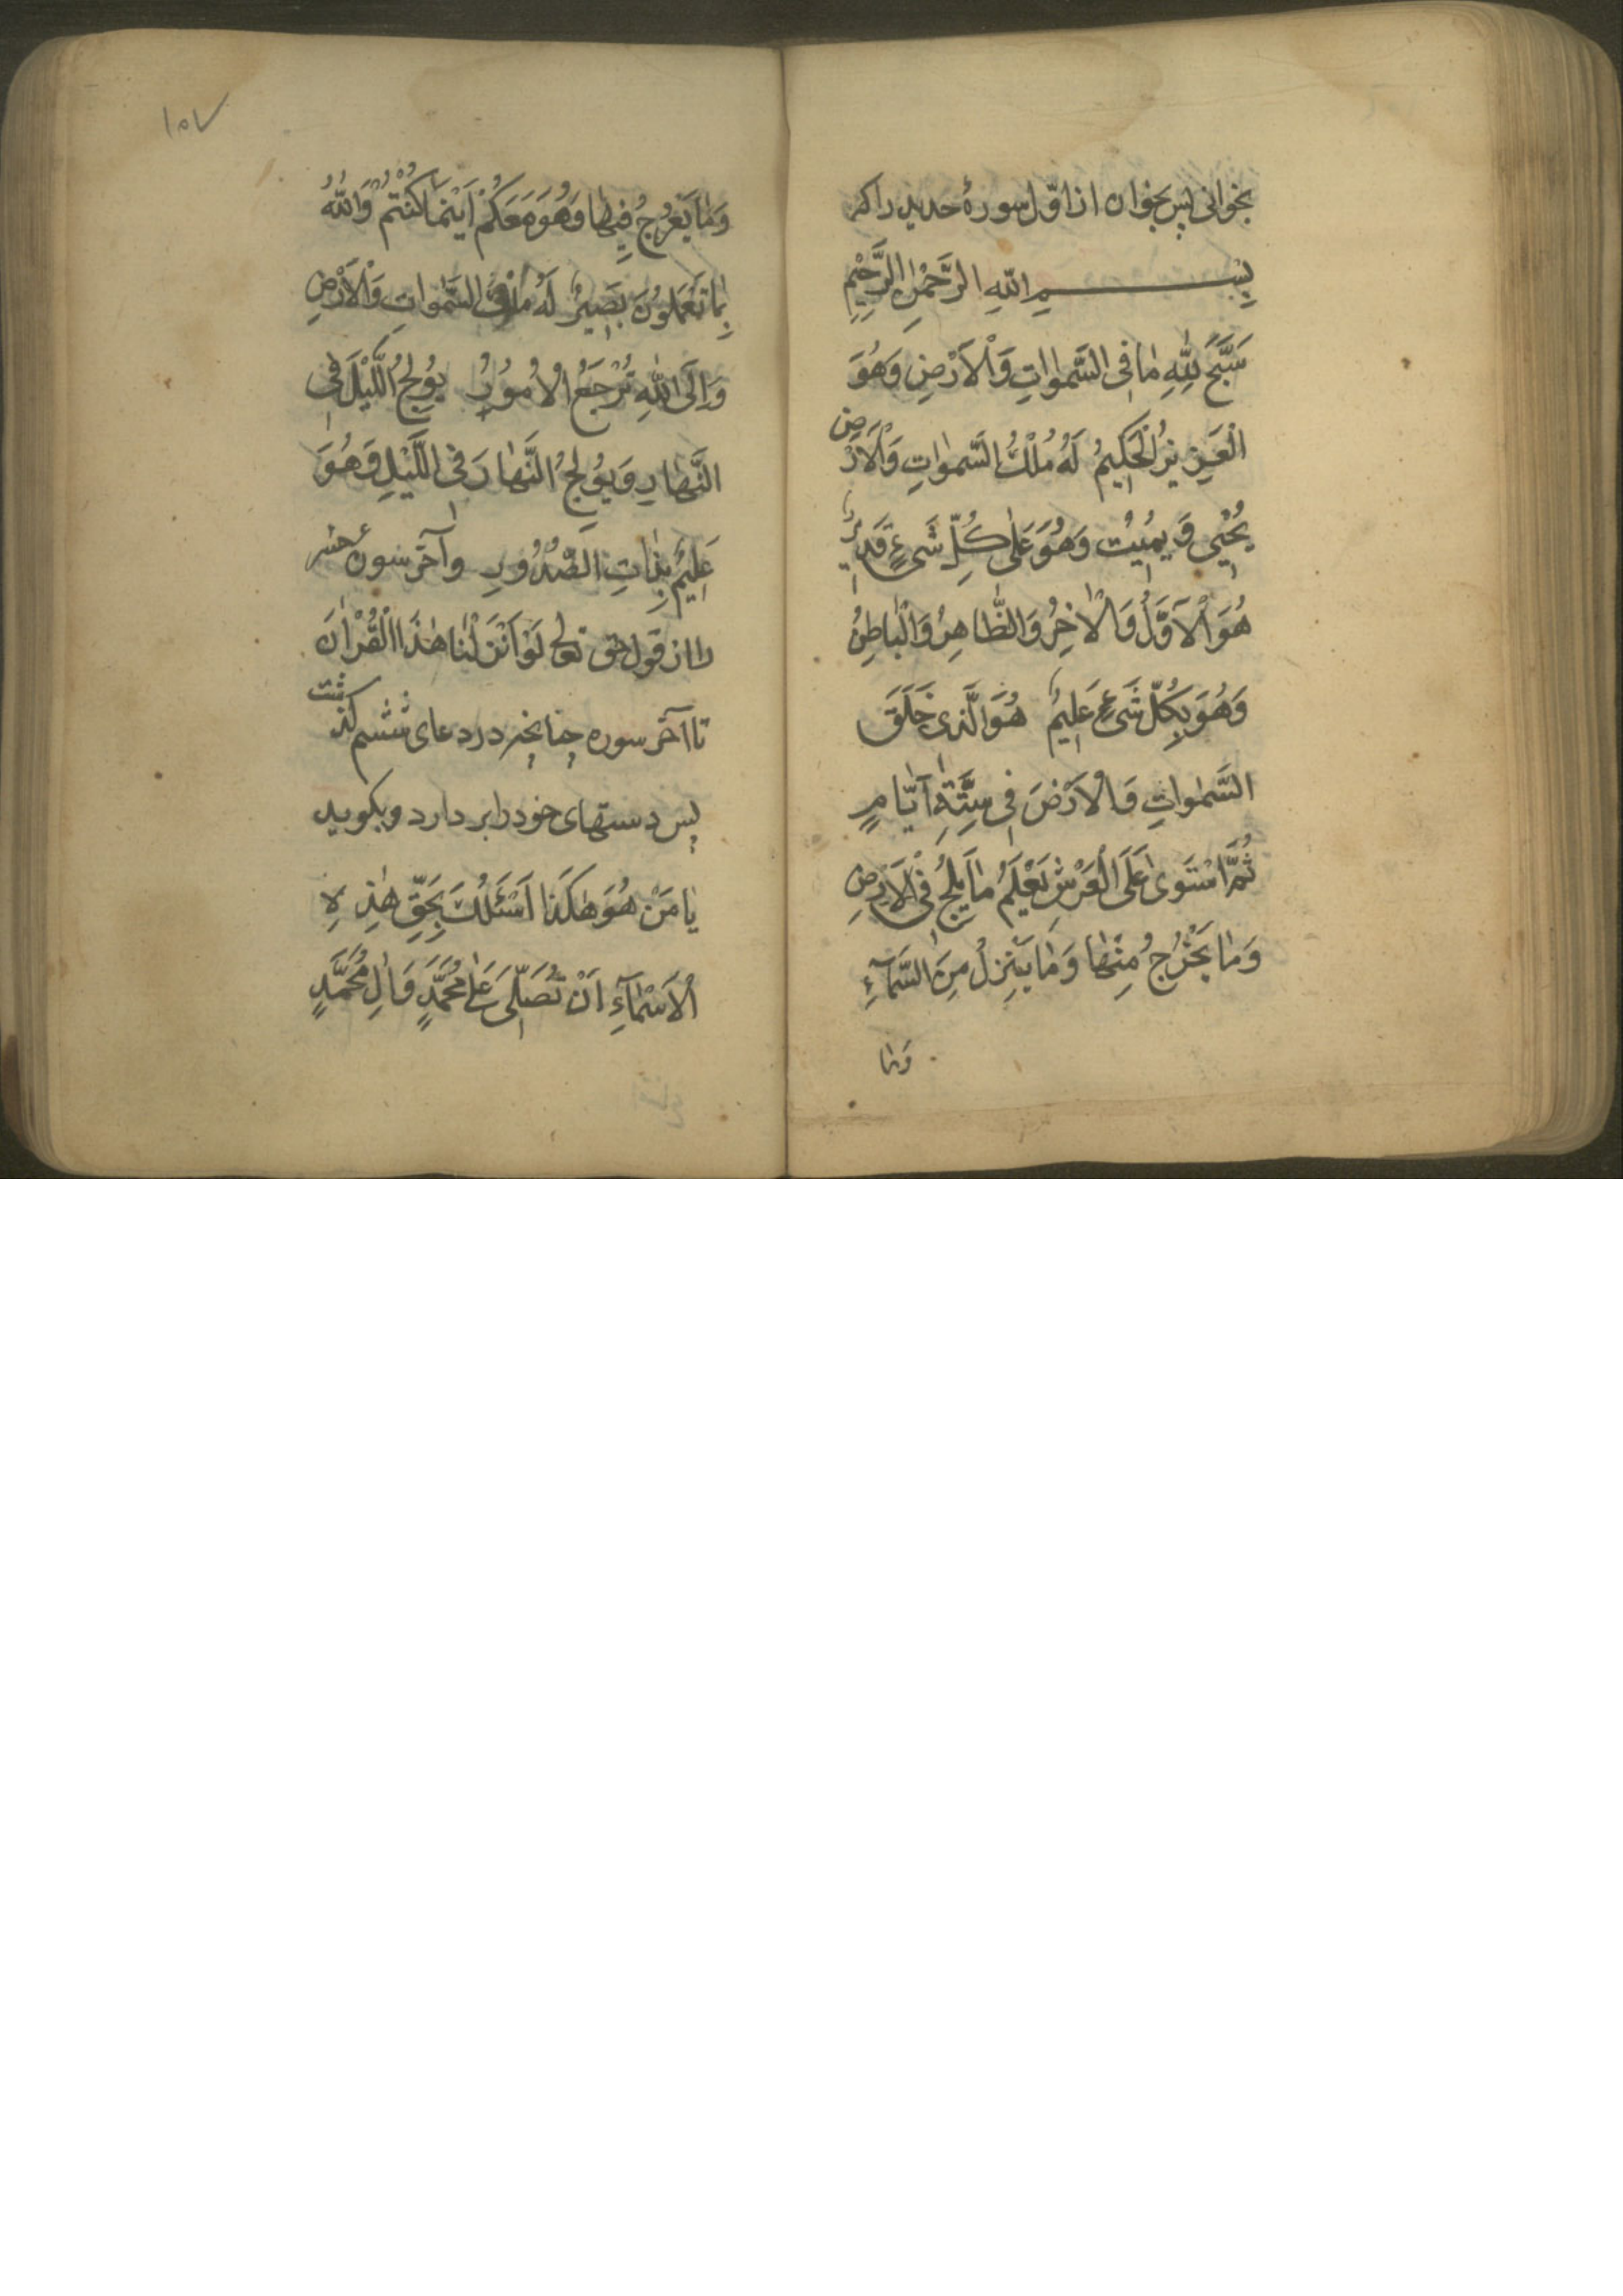 بخوانی پس بخوان از اوّل سورهٔ حدید را که
بِسْمِ اللّٰهِ الرَّحْمٰنِ الرَّحِيْمِ
سَبَّحَ لِلّٰهِ مٰا فِى السَّمٰوٰاتِ وَالْاَرْضِ وَهُوَ
الْعَزِيزُ الْحَكِيمُ لَهُ مُلْكُ السَّمٰوٰاتِ وَالْاَرْضِ
يُحْيِى وَ يُمِيْتُ وَهُوَ عَلٰى كُلِّ شَىْءٍ قَدِيرٌ
هُوَ الْاَوَّلُ وَالْاٰخِرُ وَالظّٰاهِرُ وَالْبٰاطِنُ
وَهُوَ بِكُلِّ شَىْءٍ عَلِيمٌ هُوَ الَّذِى خَلَقَ
السَّمٰوٰاتِ وَالْاَرْضَ فِى سِتَّةِ اَيّٰامٍ
ثُمَّ اسْتَوىٰ عَلَى الْعَرْشِ يَعْلَمُ مٰا يَلِجُ فِى الْاَرْضِ
وَمٰا يَخْرُجُ مِنْهٰا وَمٰا يَنْزِلُ مِنَ السَّمٰآءِ
وَمٰا
١٥٧
وَمٰا يَعْرُجُ فِيهٰا وَهُوَ مَعَكُمْ اَيْنَمٰا كُنْتُمْ وَاللّٰهُ
بِمٰا تَعْمَلُونَ بَصِيرٌ لَهُ مُلْكُ السَّمٰوٰاتِ وَالْاَرْضِ
وَاِلَى اللّٰهِ تُرْجَعُ الْاُمُوْرُ يُوْلِجُ اللَّيْلَ فِى
النَّهٰارِ وَيُوْلِجُ النَّهٰارَ فِى اللَّيْلِ وَهُوَ
عَلِيْمٌ بِذٰاتِ الصُّدُوْرِ وآخر سورهٔ حشر
را از قول حق تعالی لَوْ اَنْزَلْنٰا هٰذَا الْقُرْاٰنَ
تا آخر سوره چنانچه در دعای ششم گذشت
پس دستهای خود را بر دارد و بگوید
يٰا مَنْ هُوَ هٰكَذٰا اَسْئَلُكَ بِحَقِّ هٰذِهِ
الْاَسْمٰآءِ اَنْ تُصَلِّىَ عَلٰى مُحَمَّدٍ وَاٰلِ مُحَمَّدٍ